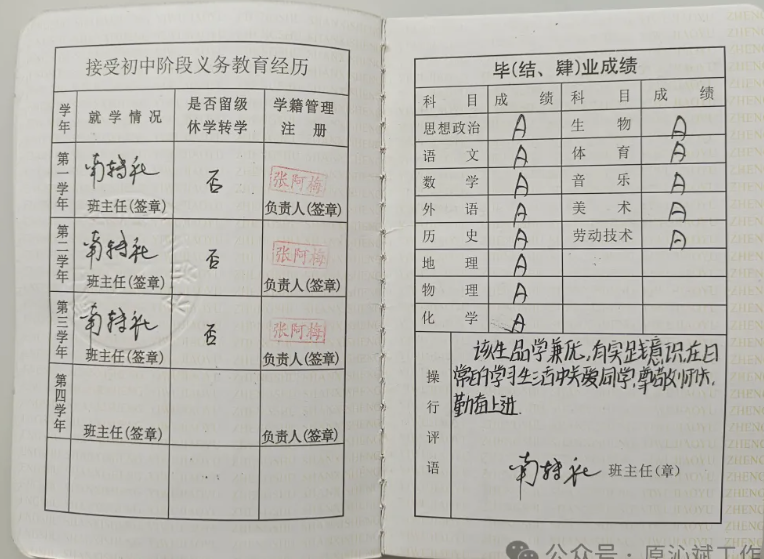 接受初中阶段义务教育经历
学年 就学情况 是否留级休学转学 学籍管理注册
第一学年 班主任(签章) 否 张阿梅 负责人(签章)
第二学年 班主任(签章) 否 张阿梅 负责人(签章)
第三学年 班主任(签章) 否 张阿梅 负责人(签章)
第四学年 班主任(签章) 负责人(签章)
毕(结、肄)业成绩
科目 成绩 科目 成绩
思想政治 A 生物 A
语文 A 体育 A
数学 A 音乐 A
外语 A 美术 A
历史 A 劳动技术 A
地理 A
物理 A
化学 A
操行评语
该生品学兼优,有实践意识,在日
常的学习生活中关爱同学,尊敬师长,
勤奋上进.
班主任(章)
公众号:原沁斌工作